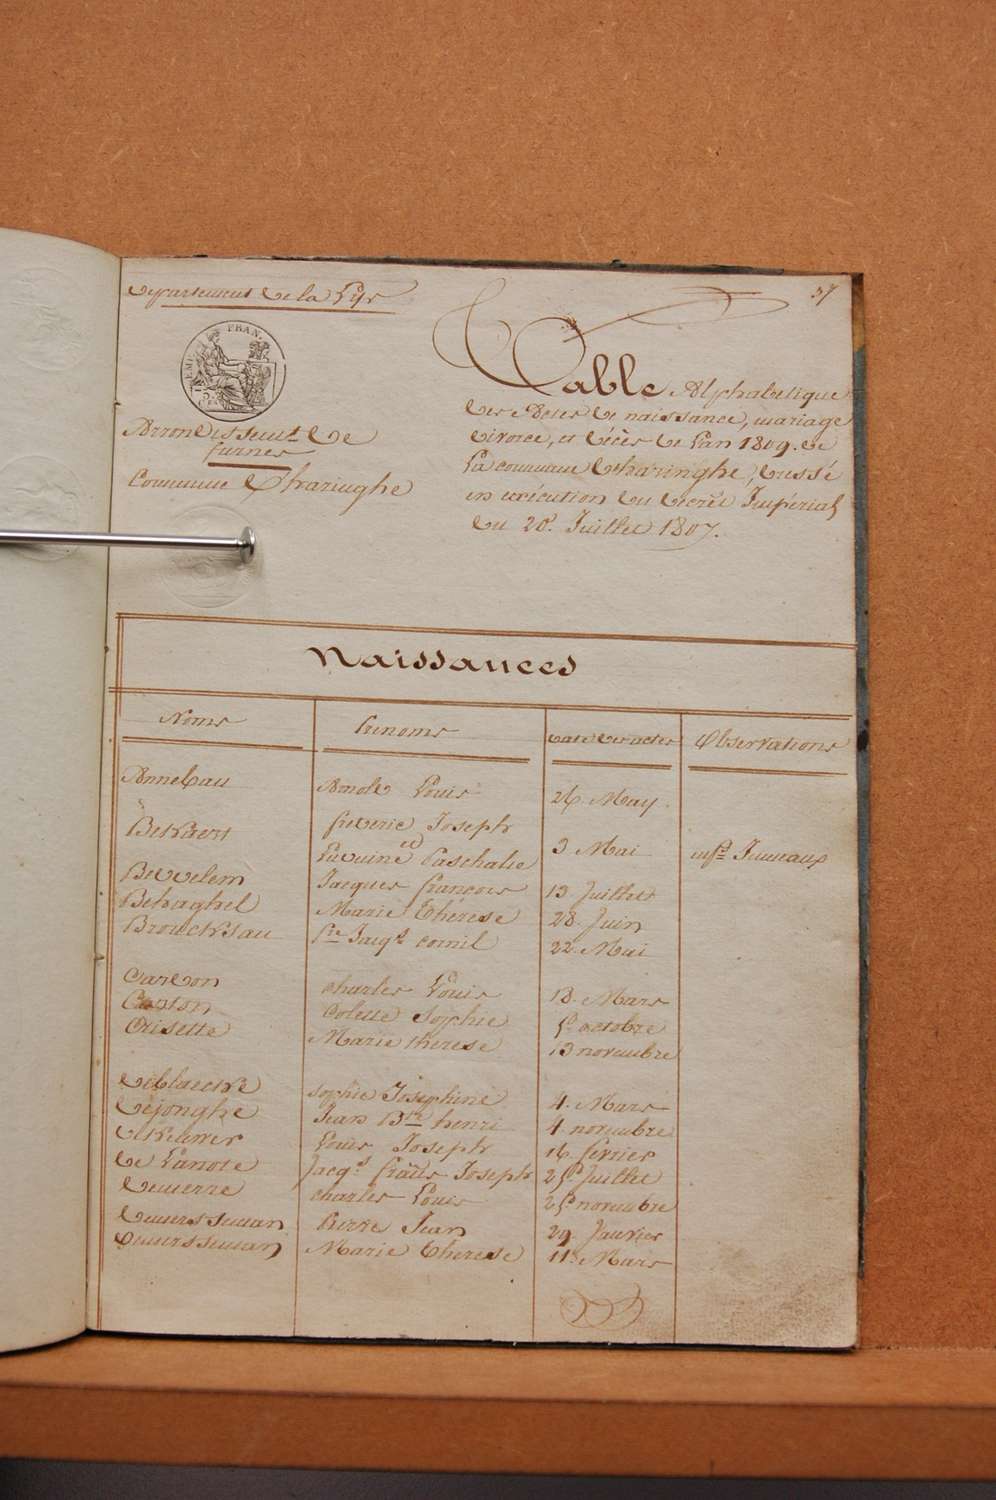 Departement de la Lys
37
EMP. FRAN.
Arrondissemt. de
furnes
Commune d'haringhe
Table Alphabetique
des Actes de naissance, mariage
divorce, et décès de L'an 1809. de
La commune d'haringhe, dressé
en exécution du decret Impérial
du 20. Juillet 1807.
Naissances
Noms Prénoms Date des actes Observations
Annebau Amole Louis 26 May
Bekaert frederic Joseph
Paschalie 3 Mai enfs. Jumeaux
Bevvelem Jacques françois 13 Juillet
Behaghel Marie Thérèse 28 Juin
Broucksau Pre. Jacqs. cornil 22 Mai
Cardon charles Louis 13 Mars
Coolette Sophie 5 octobre
Crisette Marie therese 13 novembre
deblaecke sophie Josephine 4 Mars
dejonghe Jean Bte. henri 4 novembre
Louis Joseph 16 fevrier
de Lanote Jacqs. frans Joseph 25 Juillet
demerre charles Louis 25 novembre
demersseman Pierre Jean 29 Janvier
demersseman Marie Therese 11 Mars